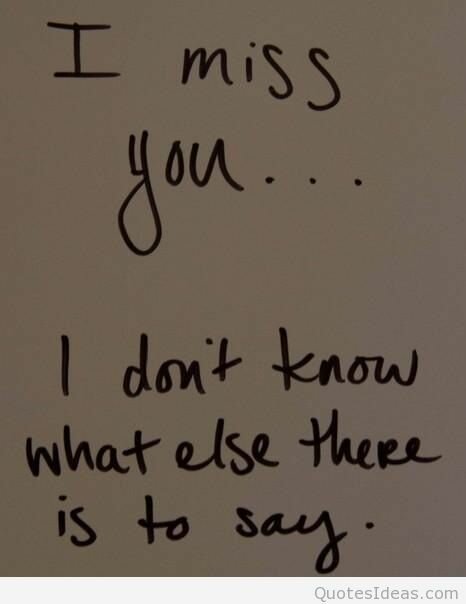 I miss
you...
I don't know
what else there
is to say.
QuotesIdeas.com